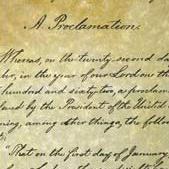 A Proclamation.
Whereas, on the twenty second da
ber, in the year of our Lord one th
hundred and sixty two, a proclama
issued by the President of the United
ning, among other things, the follow
"That on the first day of January